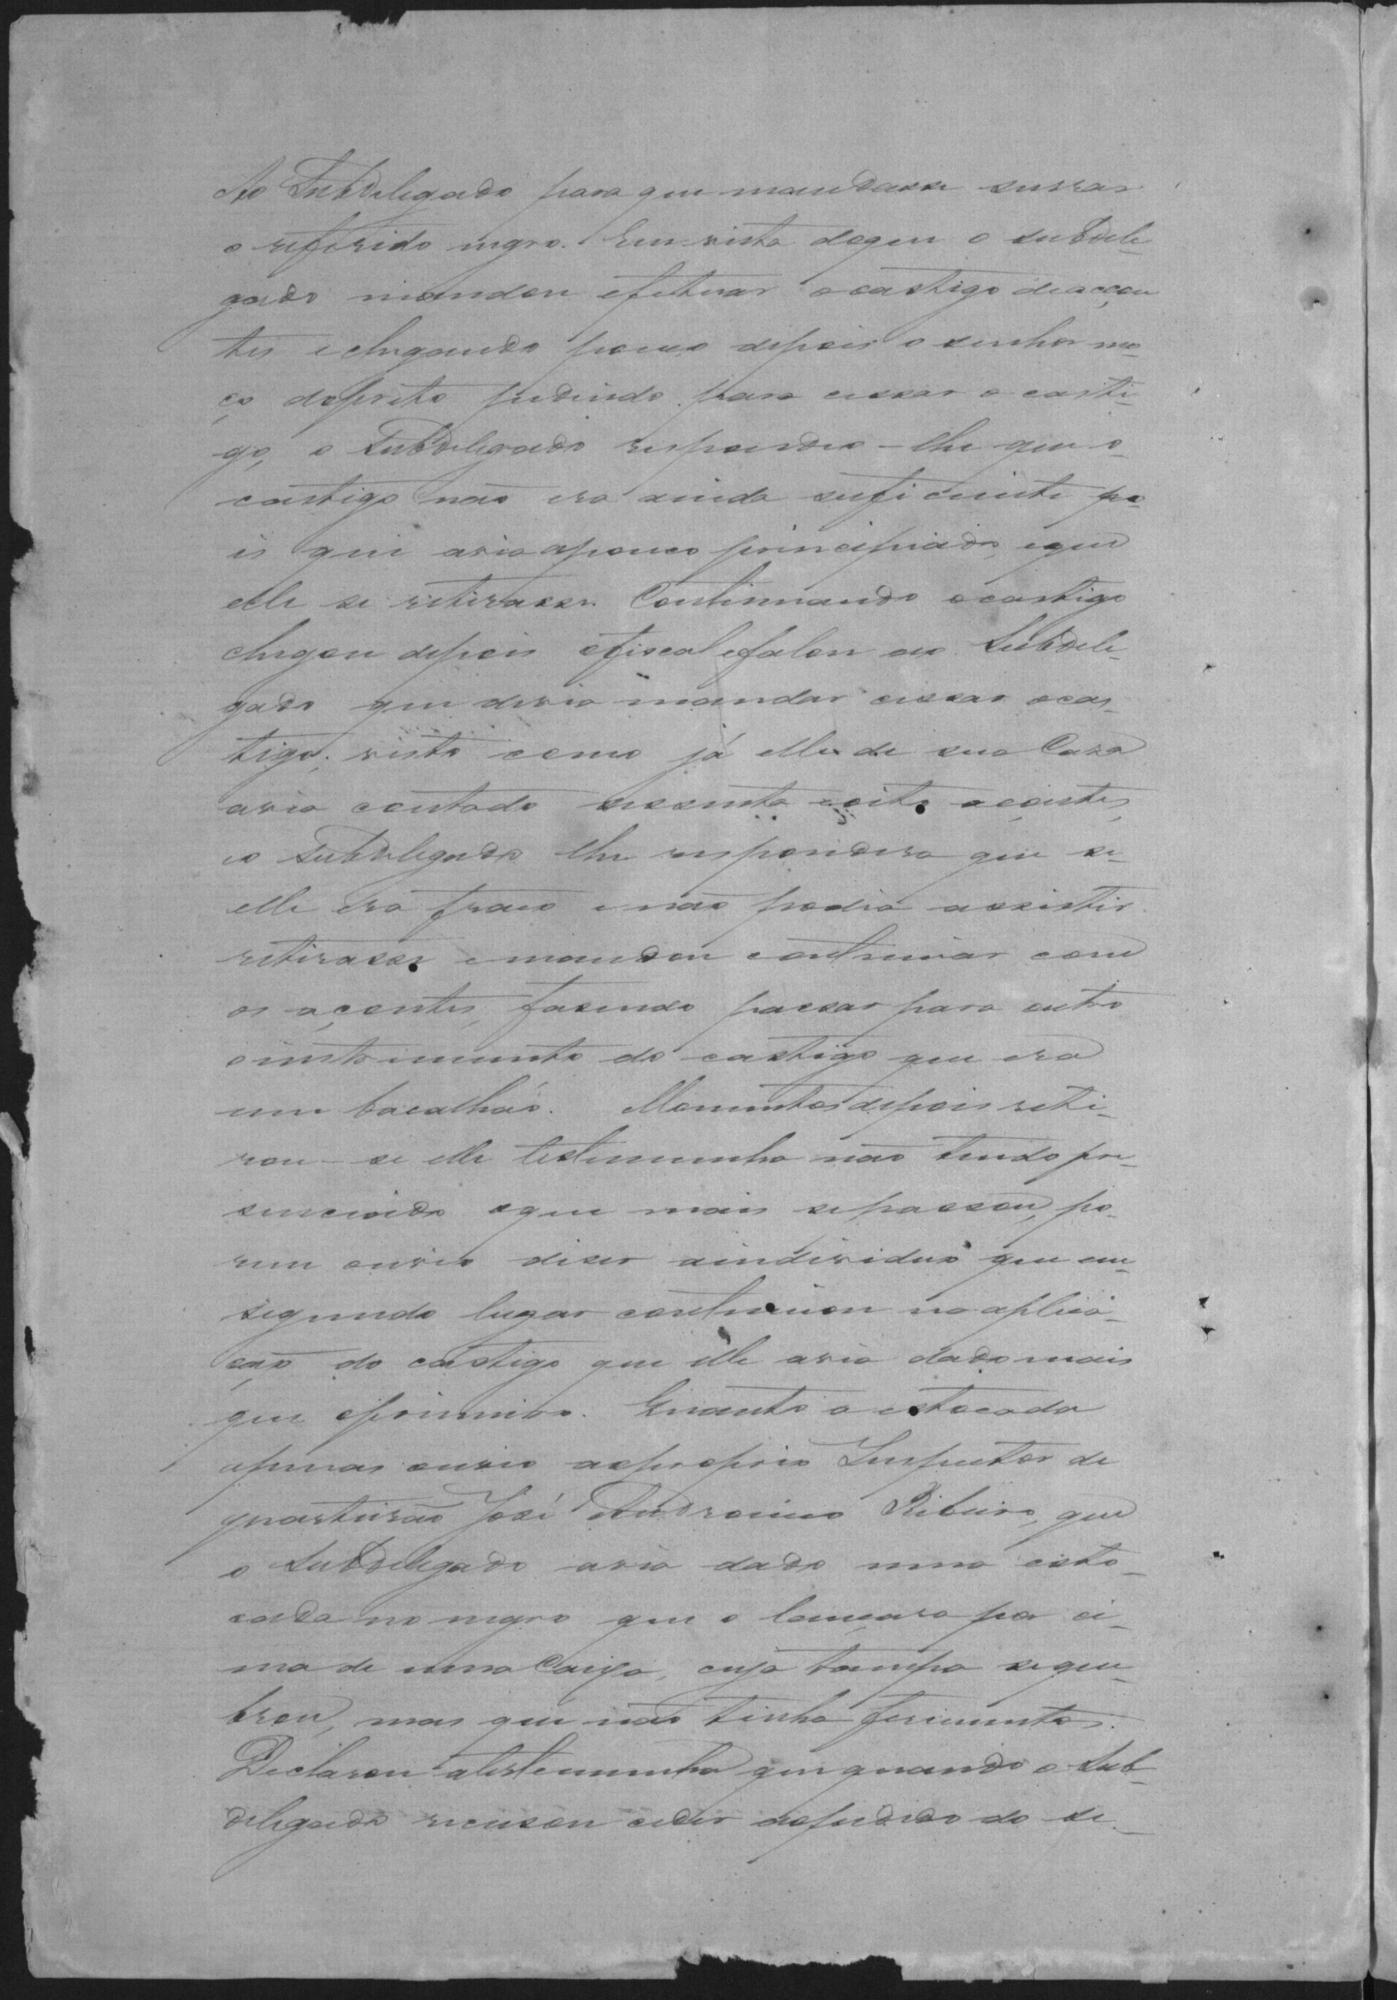 Ao Subdelegado para que mandasse surrar
o referido negro. Em vista do que o subdele-
gado mandou efetuar o castigo de açou
tes e chegando pouco depois o senhor mo-
ço do preto pedindo para cessar o casti-
go, o Subdelegado respondeo-lhe que o
castigo não era ainda suficiente po-
is que avia apouco principiado, e que
elle se retirasse. Continuando o castigo
chegou depois o fiscal e falou ao Subdele-
gado que devia mandar cessar o cas-
tigo, visto como já elle de sua Casa
avia contado sessenta e oito açoutes,
e o Subdelegado lhe respondera que se
elle era fraco e não podia assistir
retirasse e mandou continuar com
os açoutes, fasendo passar para outro
o instrumento do castigo que era
um bacalháo. Momentos depois reti-
rou-se elle testemunha não tendo pre-
senciado o que mais se passou, po-
rem ouvio diser ao individuo que em
segundo lugar continuou na aplica-
ção do castigo que elle avia dado mais
que o primeiro. Quanto a estocada
apenas ouvio ao proprio Inspector de
quarteirão José Andronico Ribeiro, que
o Subdelegado avia dado uma esto-
cada no negro que o lançara por ci-
ma de uma Caixa, cuja tampa se que-
brou, mas que não tinha ferimentos.
Declarou a testemunha que quando o Sub-
delegado recusou ceder ao pedido do se-